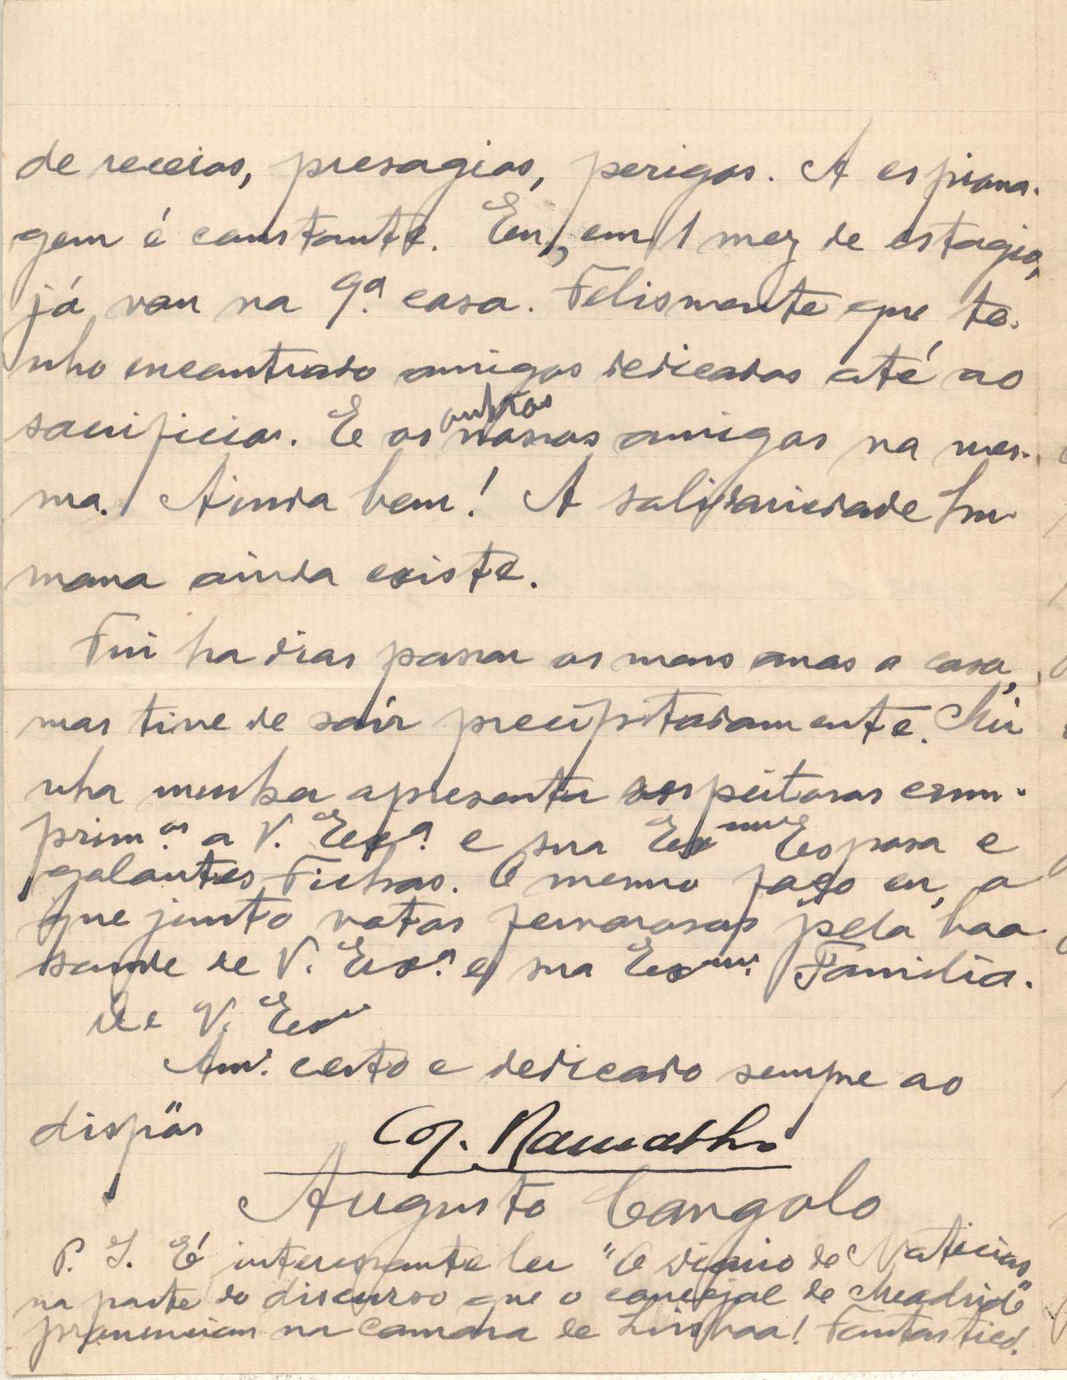 de receios, presagios, perigos. A espiona-
gem é constante. Eu, em 1 mez de estagio,
já vou na 9ª casa. Felismente que te-
nho encontrado amigos dedicados até ao
outros
sacrificio. E os nossos amigos na mes-
ma. Ainda bem! A solidariedade hu
mana ainda existe.
Fui ha dias passar os meus anos a casa,
mas tive de saír precipitadamente. Mi
nha mulher apresenta respeitosos cum-
prim.os a V. Exª. e sua Exma Esposa e
galantes Filhas. O mesmo faço eu, a
que junto votos fervorosos pela boa
saude de V. Exª. e sua Exma. Familia.
De V. Exa
Amº. certo e dedicado sempre ao
dispôr
Cap. Ramalho
Augusto Cangolo
P. S. É interessante ler "O Diario de Noticias
na parte do discurso que o concejal de Madrid"
pronunciou na camara de Lisboa! Fantastico!